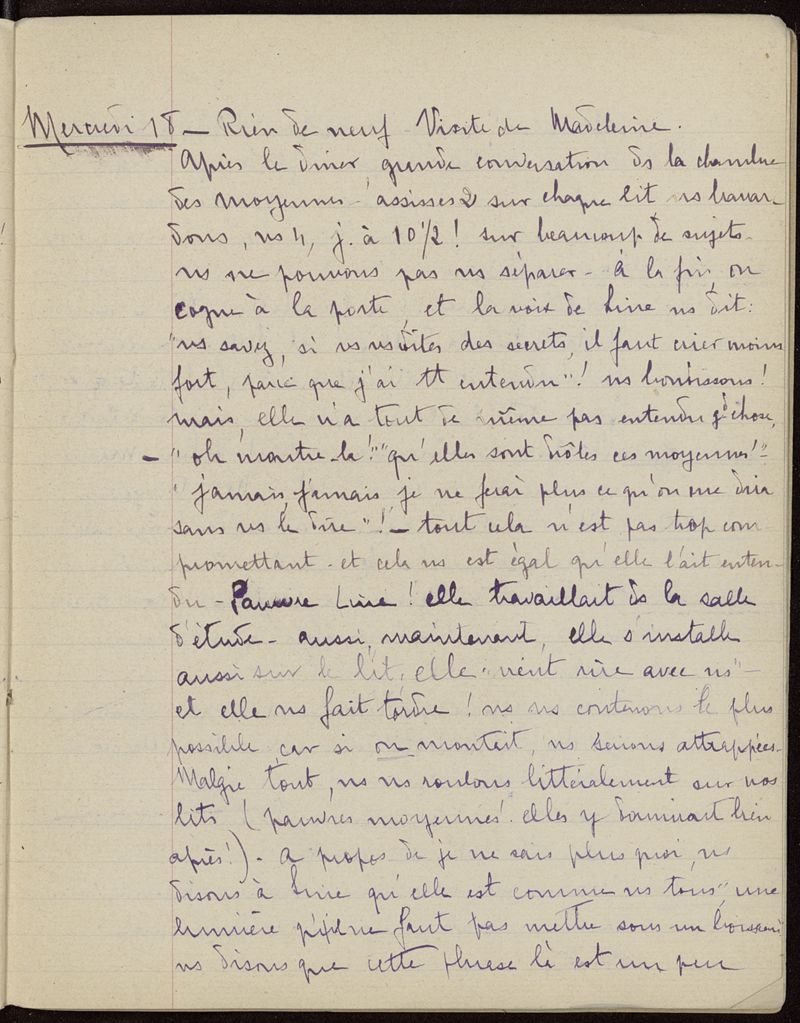 Mercredi 18 — Rien de neuf Visite de Madeleine.
Après le dîner, grande conversation ds la chambre
des moyennes - assises 2 sur chaque lit ns bavar-
dons, ns 4, j. à 10 1/2 ! sur beaucoup de sujets -
ns ne pouvons pas ns séparer - à la fin, on
cogne à la porte, et la voix de Line ns dit :
"vs savez, si vs vs dites des secrets, il faut crier moins
fort, parce que j'ai tt entendu" ! ns bondissons !
mais, elle n'a tout de même pas entendu gd chose,
— "oh montre-la !" "qu'elles sont drôles ces moyennes !"
"jamais, jamais, je ne ferai plus ce qu'on me dira
sans vs le dire" ! — tout cela n'est pas trop com-
promettant - et cela ns est égal qu'elle l'ait enten-
du - Pauvre Line ! elle travaillait ds la salle
d'étude - aussi, maintenant, elle s'installe
aussi sur le lit, elle "vient rire avec ns" -
et elle ns fait tordre ! ns ns contenons le plus
possible car si on montait, ns serions attrappées -
Malgré tout, ns ns roulons littéralement sur nos
lits (pauvres moyennes ! elles y dorment bien
après !) - a propos de je ne sais plus quoi, ns
disons à Line qu'elle est comme ns tous, "une
lumière qu'il ne faut pas mettre sous un boisseau"
ns disons que cette phrase là est un peu